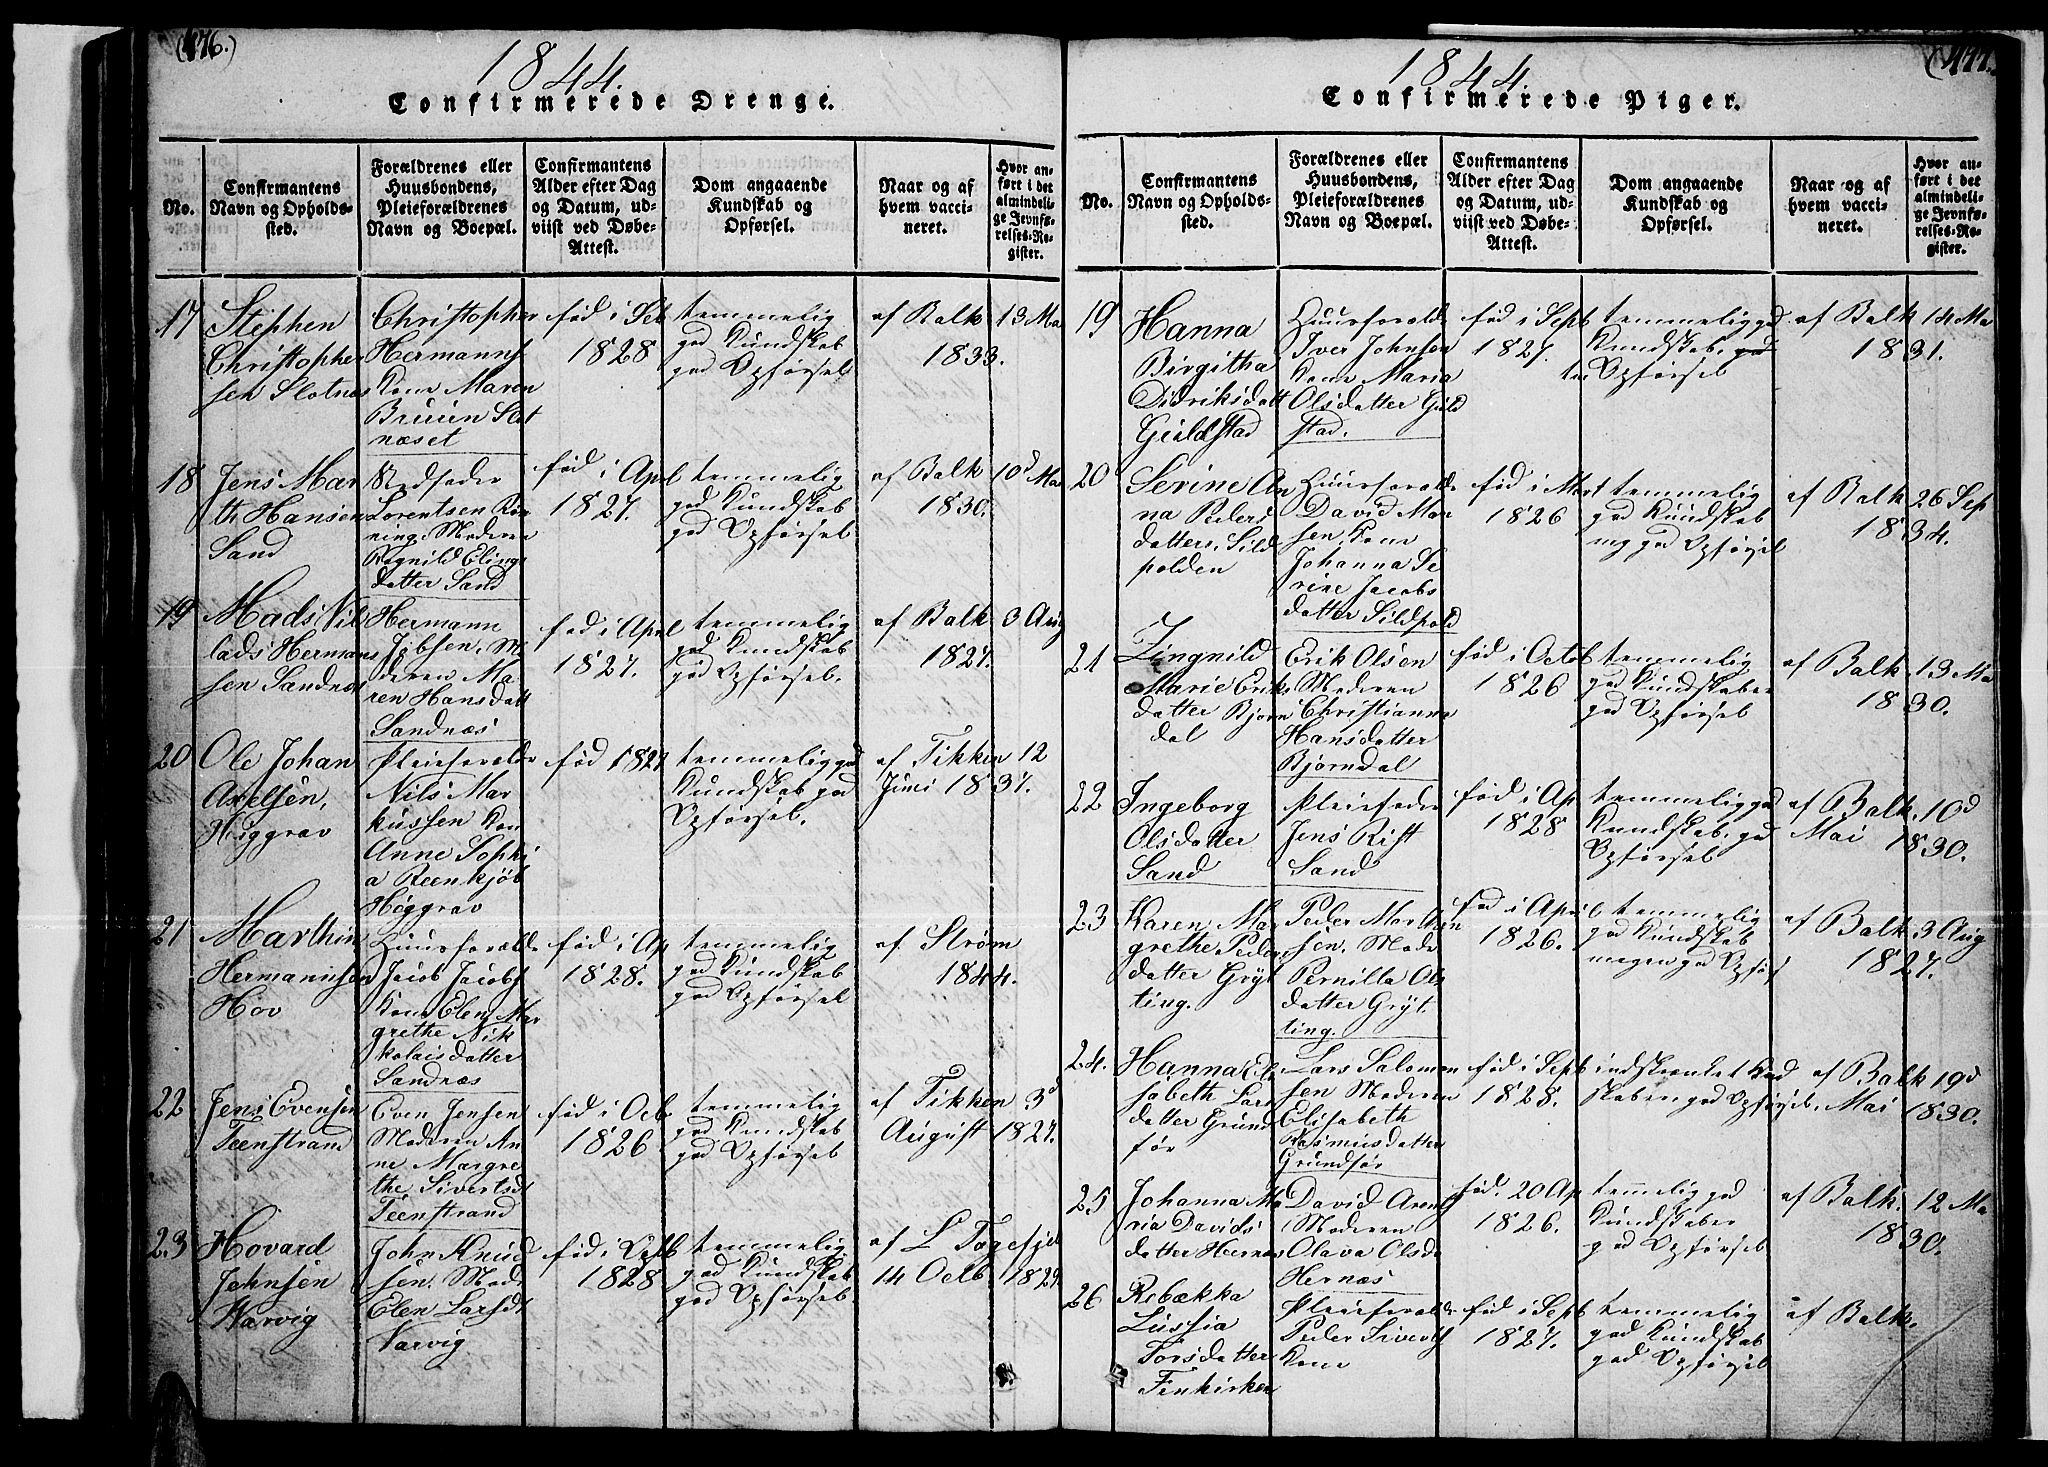 (476.)
1844.
Confirmerede Drenge.
No.
Confirmantens
Navn og Opholds-
sted.
Forældrenes eller
Huusbondens,
Pleieforældrenes
Navn og Boepæl.
Confirmantens
Alder efter Dag
og Datum, ud-
viist ved Døbe-
Attest.
Dom angaaende
Kundskab og
Opførsel.
Naar og af
hvem vacci-
neret.
Hvor an-
ført i det
almindeli-
ge Jevnfø-
relses-Re-
gister.
17
Stephen
Christophe
sen Slotnes
Christopher
Hermanns
Kone Maren
Bruun Slot
næset
fød i
1828
temmelig
god Kundskab
god Opførsel
af Balk 13 Ma
1833.
18
Jens Mar
th Hansen
Sand
Lorentsen Røn
ning. Moderen
Ragnild Elings
datter Sand
fød i Apl
1827.
temmelig
god Kundskab
god Opførsel
af Balk 10d Ma
1830.
19
Mads Nil
lads Herman
sen Sandnæs
Hermann
Jobsen. Mo
deren Ma
ren Hansdatt
Sandnæs
fød i Apri
1827.
temmelig
god Kundskab
god Opførsel.
af Balk 3 Aug
1827.
20
Ole Johan
Axelsen,
Høggrav
Pleieforælde
Nils Mar
kussen Kon
Anne Sophi
a Reenkjøb
Høggrav
fød 1827
temmelig god
Kundskab god
Opførsel.
af Tikken 12
Juni 1837.
21
Marthin
Hermannsen
Hov
Huusforælde
Jacob Jacobs
Kone Elen Mar
grethe Nik
kolaisdatter
Sandnæs
fød i Ap
1828.
temmelig
god Kundskab
god Opførsel
af Strøm
1844.
22
Jens Evensen
Teenstrand
Even Jensen
Moderen An
ne Margre
the Sivertsdt
Teenstrand
fød i Octb
1826
temmelig
god Kundskab
god Opførsel
af Tikken 3d
August 1827.
23
Hovard
Johnsen
Warvig
John Knud
sen. Mode
Elen Larsdt
Varvig
fød i
1828
temmelig
god Kundskab
god Opførsel
af L Togesjel
14 Octb 1829
(477.)
1844.
Confirmerede Piger.
No.
Confirmantens
Navn og Opholds-
sted.
Forældrenes eller
Huusbondens,
Pleieforældrenes
Navn og Boepæl.
Confirmantens
Alder efter Dag
og Datum, ud-
viist ved Døbe-
Attest.
Dom angaaende
Kundskab og
Opførsel.
Naar og af
hvem vacci-
neret.
Hvor an-
ført i det
almindeli-
ge Jevnfø-
relses-Re-
gister.
19
Hanna
Birgitha
Didriksdatt
Guldstad
Huusforælde
Iver Johnsen
Kone Maria
Olsdatter Guld
stad.
fød i Sept
1827.
temmelig god
Kundskab. god
Opførsel
af Balk 14 Ma
1831.
20
Serine An
na Peders
datter. Sild
polden
Huusforælde
David Mor
sen, Kone
Johanna Se
rine Jacobs
datter Sildpold
fød i Mart
1826
temmelig
god Kundskab
god Opførsel
af Balk 26 Sep
1834.
21
Zingnild
Marie Eriks
datter Bjørn
dal
Erik Olsen
Moderen
Christianna
Hansdatter
Bjørndal
fød i Octob
1826
temmelig
god Kundskaber
god Opførsel
af Balk 13 Ma
1830.
22
Ingeborg
Olsdatter
Sand
Pleiefader
Jens Rist
Sand
fød i Ap
1828
temmelig god
Kundskab. god
Opførsel
af Balk. 10d
Mai 1830.
23
Karen Ma
grethe Peder
datter Gryt
ting.
Peder Marthin
sen. Mode
Pernilla Ols
datter Gryt
ting.
fød i April
1826.
temmelig
god Kundskab
megen god Opførs
af Balk 3 Aug
1827.
24.
Hanna Eli
sabeth Lars
datter Grund
før
Lars Salomon
sen Moderen
Elisabeth
Rasmusdatter
Grundfør
fød i Sept
1828.
indskrænket Kund
skaber, god Opførsel.
af Balk 19d
Mai 1830.
25
Johanna Ma
ria Davids
datter Hernæs
David Arents
Moderen
Olava Olsda
Hernæs
fød. 20 Ap
1826.
temmelig god
Kundskaber
god Opførsel
af Balk. 12 Ma
1830.
26
Rebækka
Lussia
Torsdatter
Finkirken
Pleieforælde
Peder Siverts
Kone
fød i Sept
1827.
temmelig
god Kundskab
god Opførsel
af Balk.